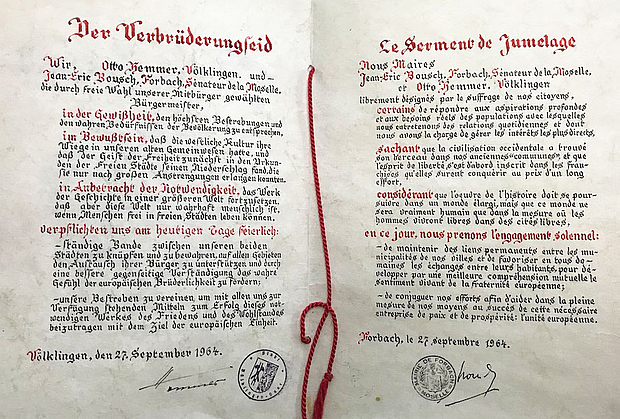 Der Verbrüderungseid
Wir, Otto Hemmer, Völklingen, und –
Jean-Eric Bousch, Forbach, Sénateur de la Moselle,
die durch freie Wahl unserer Mitbürger gewählten
Bürgermeister,
in der Gewißheit, den höchsten Bestrebungen und
den wahren Bedürfnissen der Bevölkerung zu entsprechen,
im Bewußtsein, daß die westliche Kultur ihre
Wiege in unseren alten Gemeinwesen hatte, und
daß der Geist der Freiheit zunächst in den Urkun-
den der Freien Städte seinen Niederschlag fand, die
sie nur nach großen Anstrengungen erlangen konnten,
in Anbetracht der Notwendigkeit, das Werk
der Geschichte in einer größeren Welt fortzusetzen,
daß aber diese Welt nur wahrhaft menschlich ist,
wenn Menschen frei in freien Städten leben können,
verpflichten uns am heutigen Tage feierlich:
– ständige Bande zwischen unseren beiden
Städten zu knüpfen und zu bewahren, auf allen Gebieten
den Austausch ihrer Bürger zu unterstützen und durch
eine bessere gegenseitige Verständigung das wahre
Gefühl der europäischen Brüderlichkeit zu fördern;
– unsere Bestreben zu vereinen, um mit allen uns zur
Verfügung stehenden Mitteln zum Erfolg dieses not-
wendigen Werkes des Friedens und des Wohlstandes
beizutragen mit dem Ziel der europäischen Einheit.
Völklingen, den 27. September 1964.
Hemmer
Le Serment de Jumelage
Nous Maires
Jean-Eric Bousch, Forbach, Sénateur de la Moselle,
et Otto Hemmer, Völklingen
librement désignés par le suffrage de nos citoyens,
certains de répondre aux aspirations profondes
et aux besoins réels des populations avec lesquelles
nous entretenons des relations quotidiennes et dont
nous avons la charge de gérer les intérêts les plus directs,
sachant que la civilisation occidentale a trouvé
son berceau dans nos anciennes «communes», et que
l'esprit de liberté s'est d'abord inscrit dans les fran-
chises qu'elles surent conquérir au prix d'un long
effort,
considérant que l'œuvre de l'histoire doit se pour-
suivre dans un monde élargi, mais que ce monde ne
sera vraiment humain que dans la mesure où les
hommes vivront libres dans des cités libres,
en ce jour, nous prenons l'engagement solennel:
– de maintenir des liens permanents entre les mu-
nicipalités de nos villes et de favoriser en tous do-
maines les échanges entre leurs habitants, pour dé-
velopper par une meilleure compréhension mutuelle le
sentiment vivant de la fraternité européenne;
– de conjuguer nos efforts afin d'aider dans la pleine
mesure de nos moyens au succès de cette nécessaire
entreprise de paix et de prospérité: l'unité européenne.
Forbach, le 27. septembre 1964.
MAIRIE DE FORBACH
MOSELLE